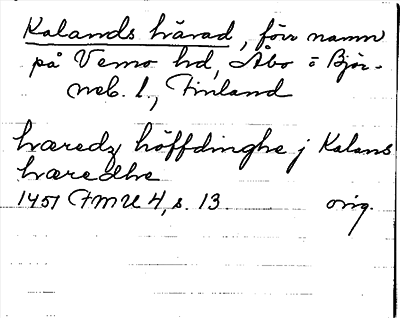 Kalands härad, förr namn
på Vemo hd, Åbo o Bjor-
neb. l., Finland
hæredz höffdinghe j Kalans
hæredhe
1451 FMU 4, s. 13. orig.